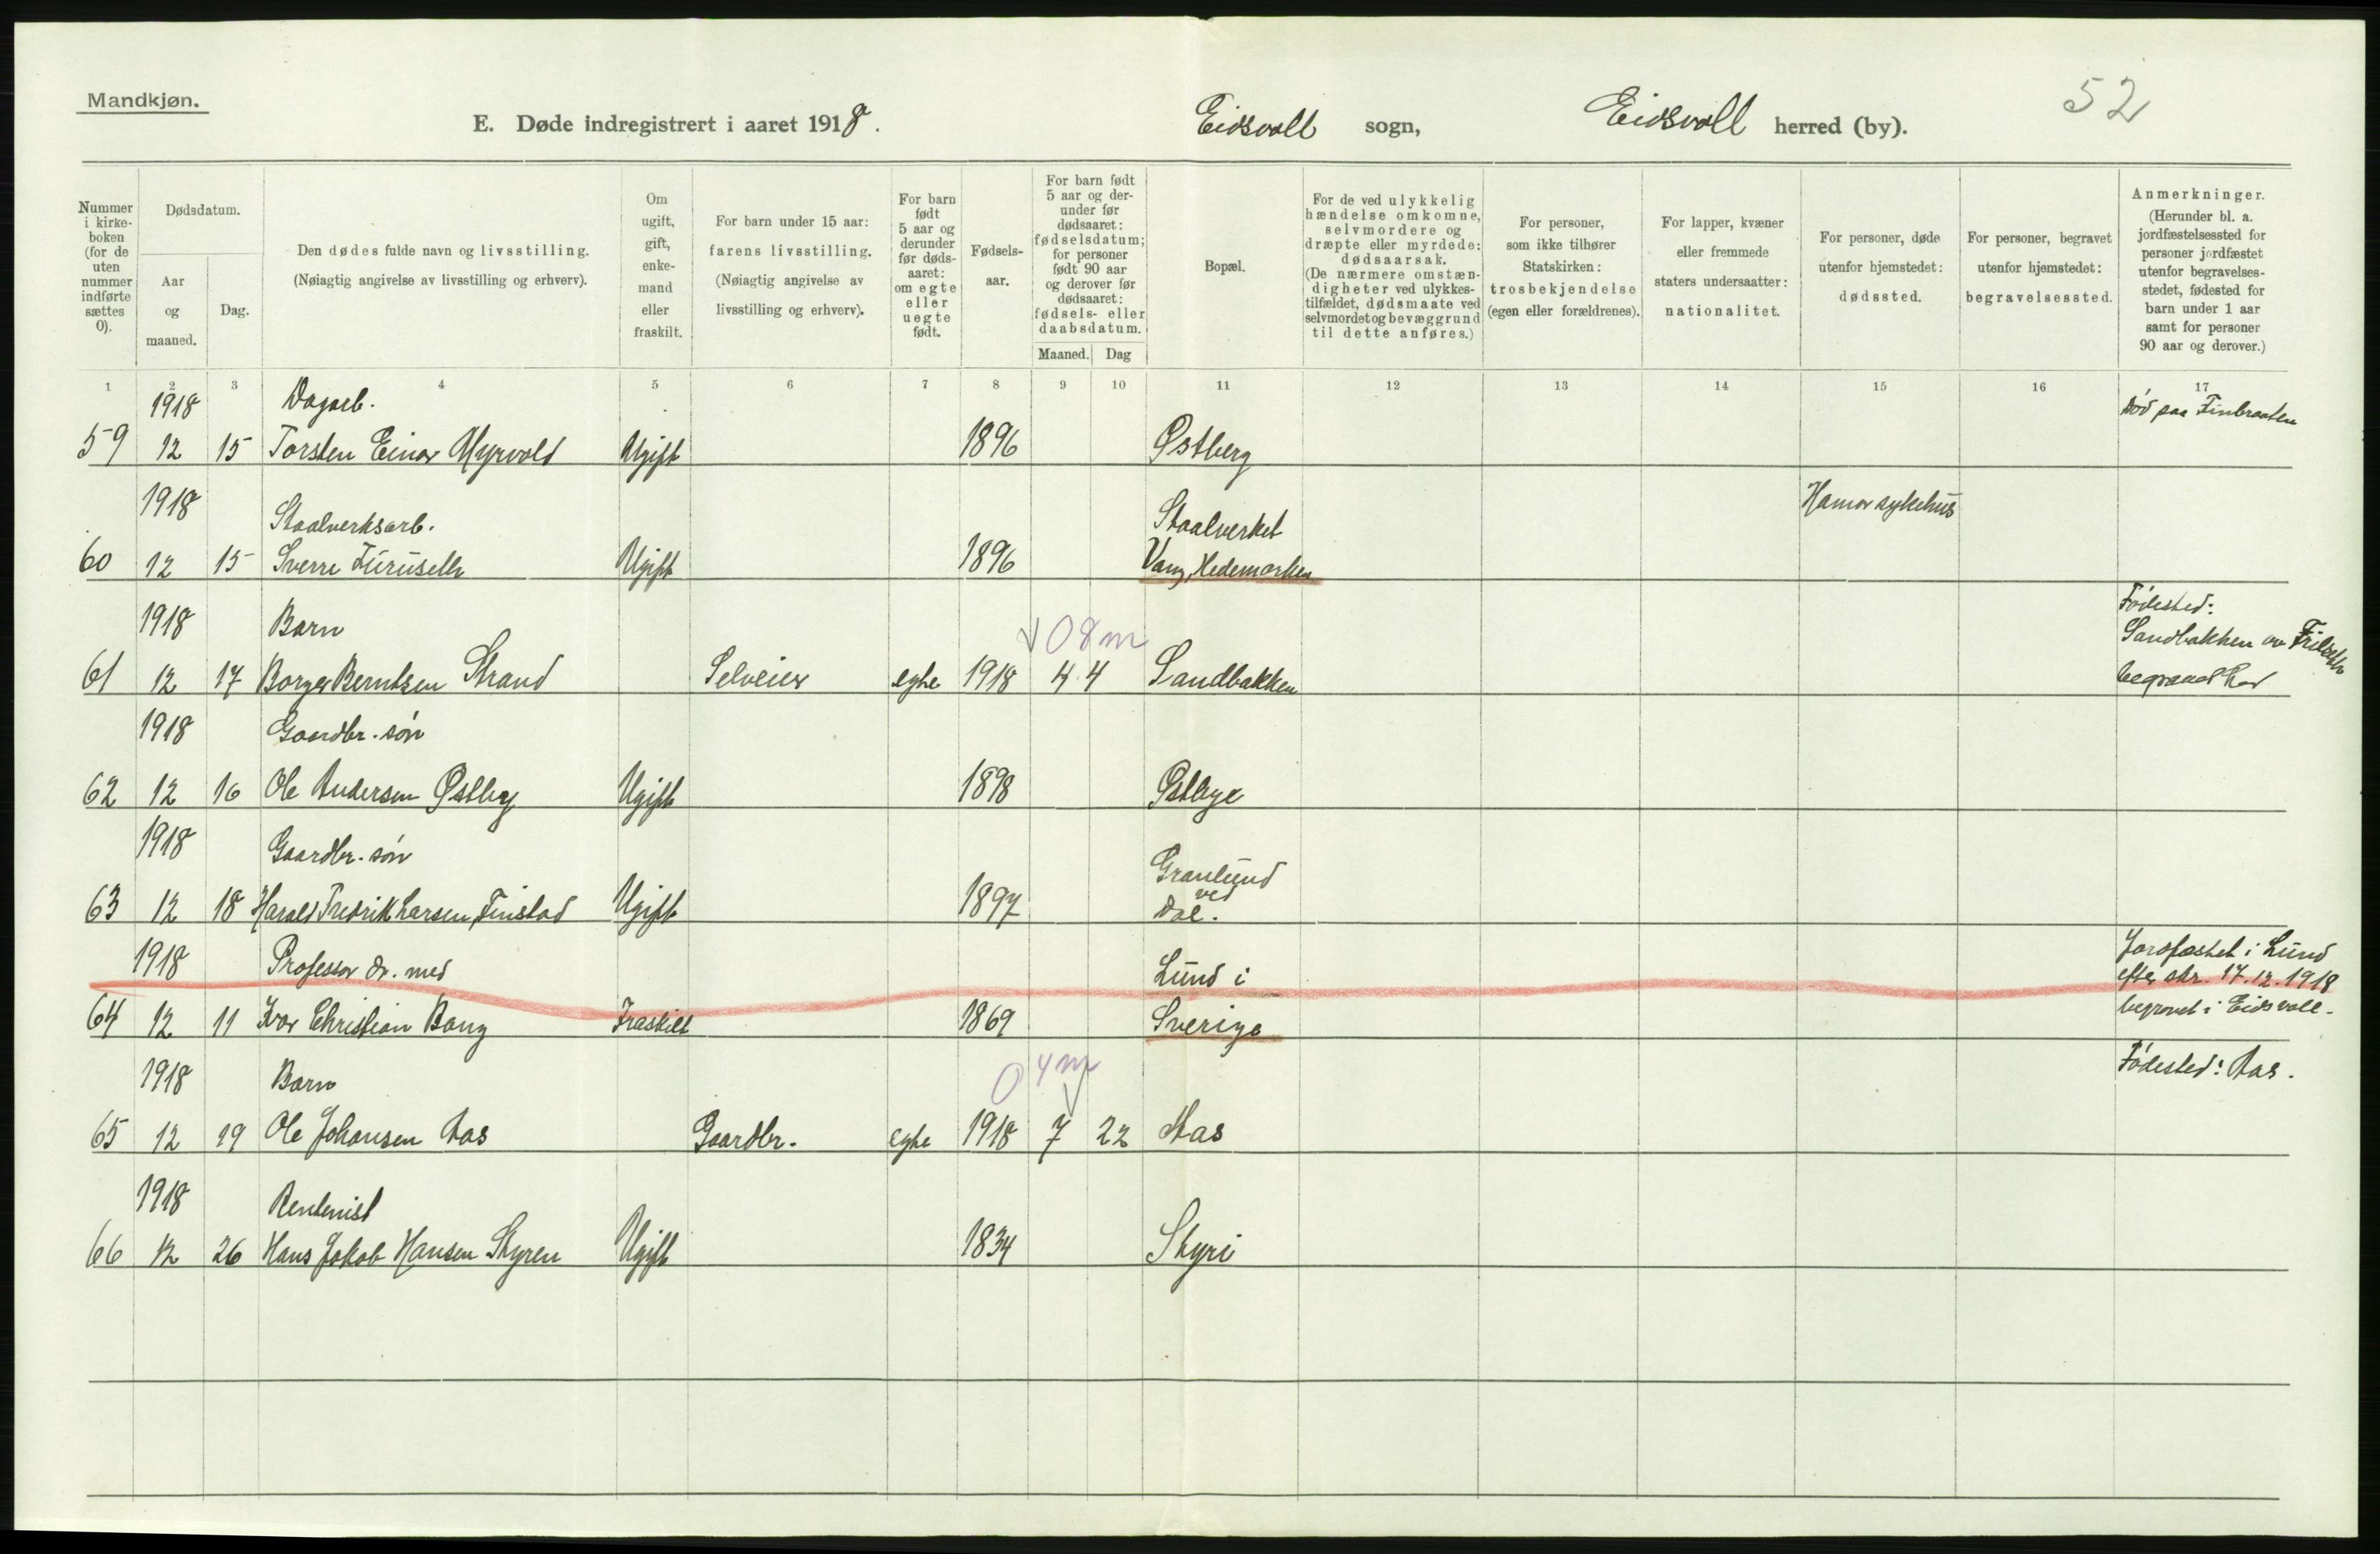 Mandkjøn.
E. Døde indregistrert i aaret 1918.
Eidsvoll sogn,
Eidsvoll herred (by).
52
Nummer i kirke-boken (for de uten nummer indførte sættes 0).
Dødsdatum.
Aar og maaned.
Dag.
Den dødes fulde navn og livsstilling.
(Nøiagtig angivelse av livsstilling og erhverv).
Om ugift, gift, enke-mand eller fraskilt.
For barn under 15 aar:
farens livsstilling.
(Nøiagtig angivelse av
livsstilling og erhverv).
For barn født 5 aar og derunder før døds-aaret: om egte eller uegte født.
Fødsels-aar.
For barn født 5 aar og der-under før dødsaaret: fødselsdatum; for personer født 90 aar og derover før dødsaaret: fødsels- eller daabsdatum.
Maaned.
Dag
Bopæl.
For de ved ulykkelig hændelse omkomne, selvmordere og dræpte eller myrdede: dødsaarsak.
(De nærmere omstæn-digheter ved ulykkes-tilfældet, dødsmaate ved selvmordet og bevæggrund til dette anføres.)
For personer,
som ikke tilhører
Statskirken:
trosbekjendelse
(egen eller forældrenes).
For lapper, kvæner
eller fremmede
staters undersaatter:
nationalitet.
For personer, døde
utenfor hjemstedet:
dødssted.
For personer, begravet
utenfor hjemstedet:
begravelsessted.
Anmerkninger.
(Herunder bl. a. jordfæstelsessted for personer jordfæstet utenfor begravelses-stedet, fødested for barn under 1 aar samt for personer 90 aar og derover.)
1 2 3 4 5 6 7 8 9 10 11 12 13 14 15 16 17
1918 Dagarb. Død paa Finbraaten
59 12 15 Torsten Einar Myrvold Ugift 1896 Østberg
1918 Staalverksarb. Staalverket Hamar sykehus
60 12 15 Sverre Furuseth Ugift 1896 Vang, Hedemarken
1918 Barn 08m Fødested:
Sandbakken
61 12 17 Borger Berntsen Strand Selveier egte 1918 4 4 Sandbakken
1918 Gaardbr. søn
62 12 16 Ole Andersen Østbye Ugift 1898 Østbye
1918 Gaardbr. søn Granlund
ved
63 12 18 Harald Fredrik Larsen Finstad Ugift 1897 Dal.
1918 Professor dr. med Lund i Jordfæstet i Lund
efter skr. 17.12.1918
64 12 11 Ivar Christian Bang Fraskilt 1869 Sverige begravet i Eidsvoll.
1918 Barn 0 4m Fødested: Aas.
65 12 19 Ole Johansen Aas Gaardbr. egte 1918 7 22 Aas
1918 Rentenist
66 12 26 Hans Jakob Hansen Styren Ugift 1834 Styri